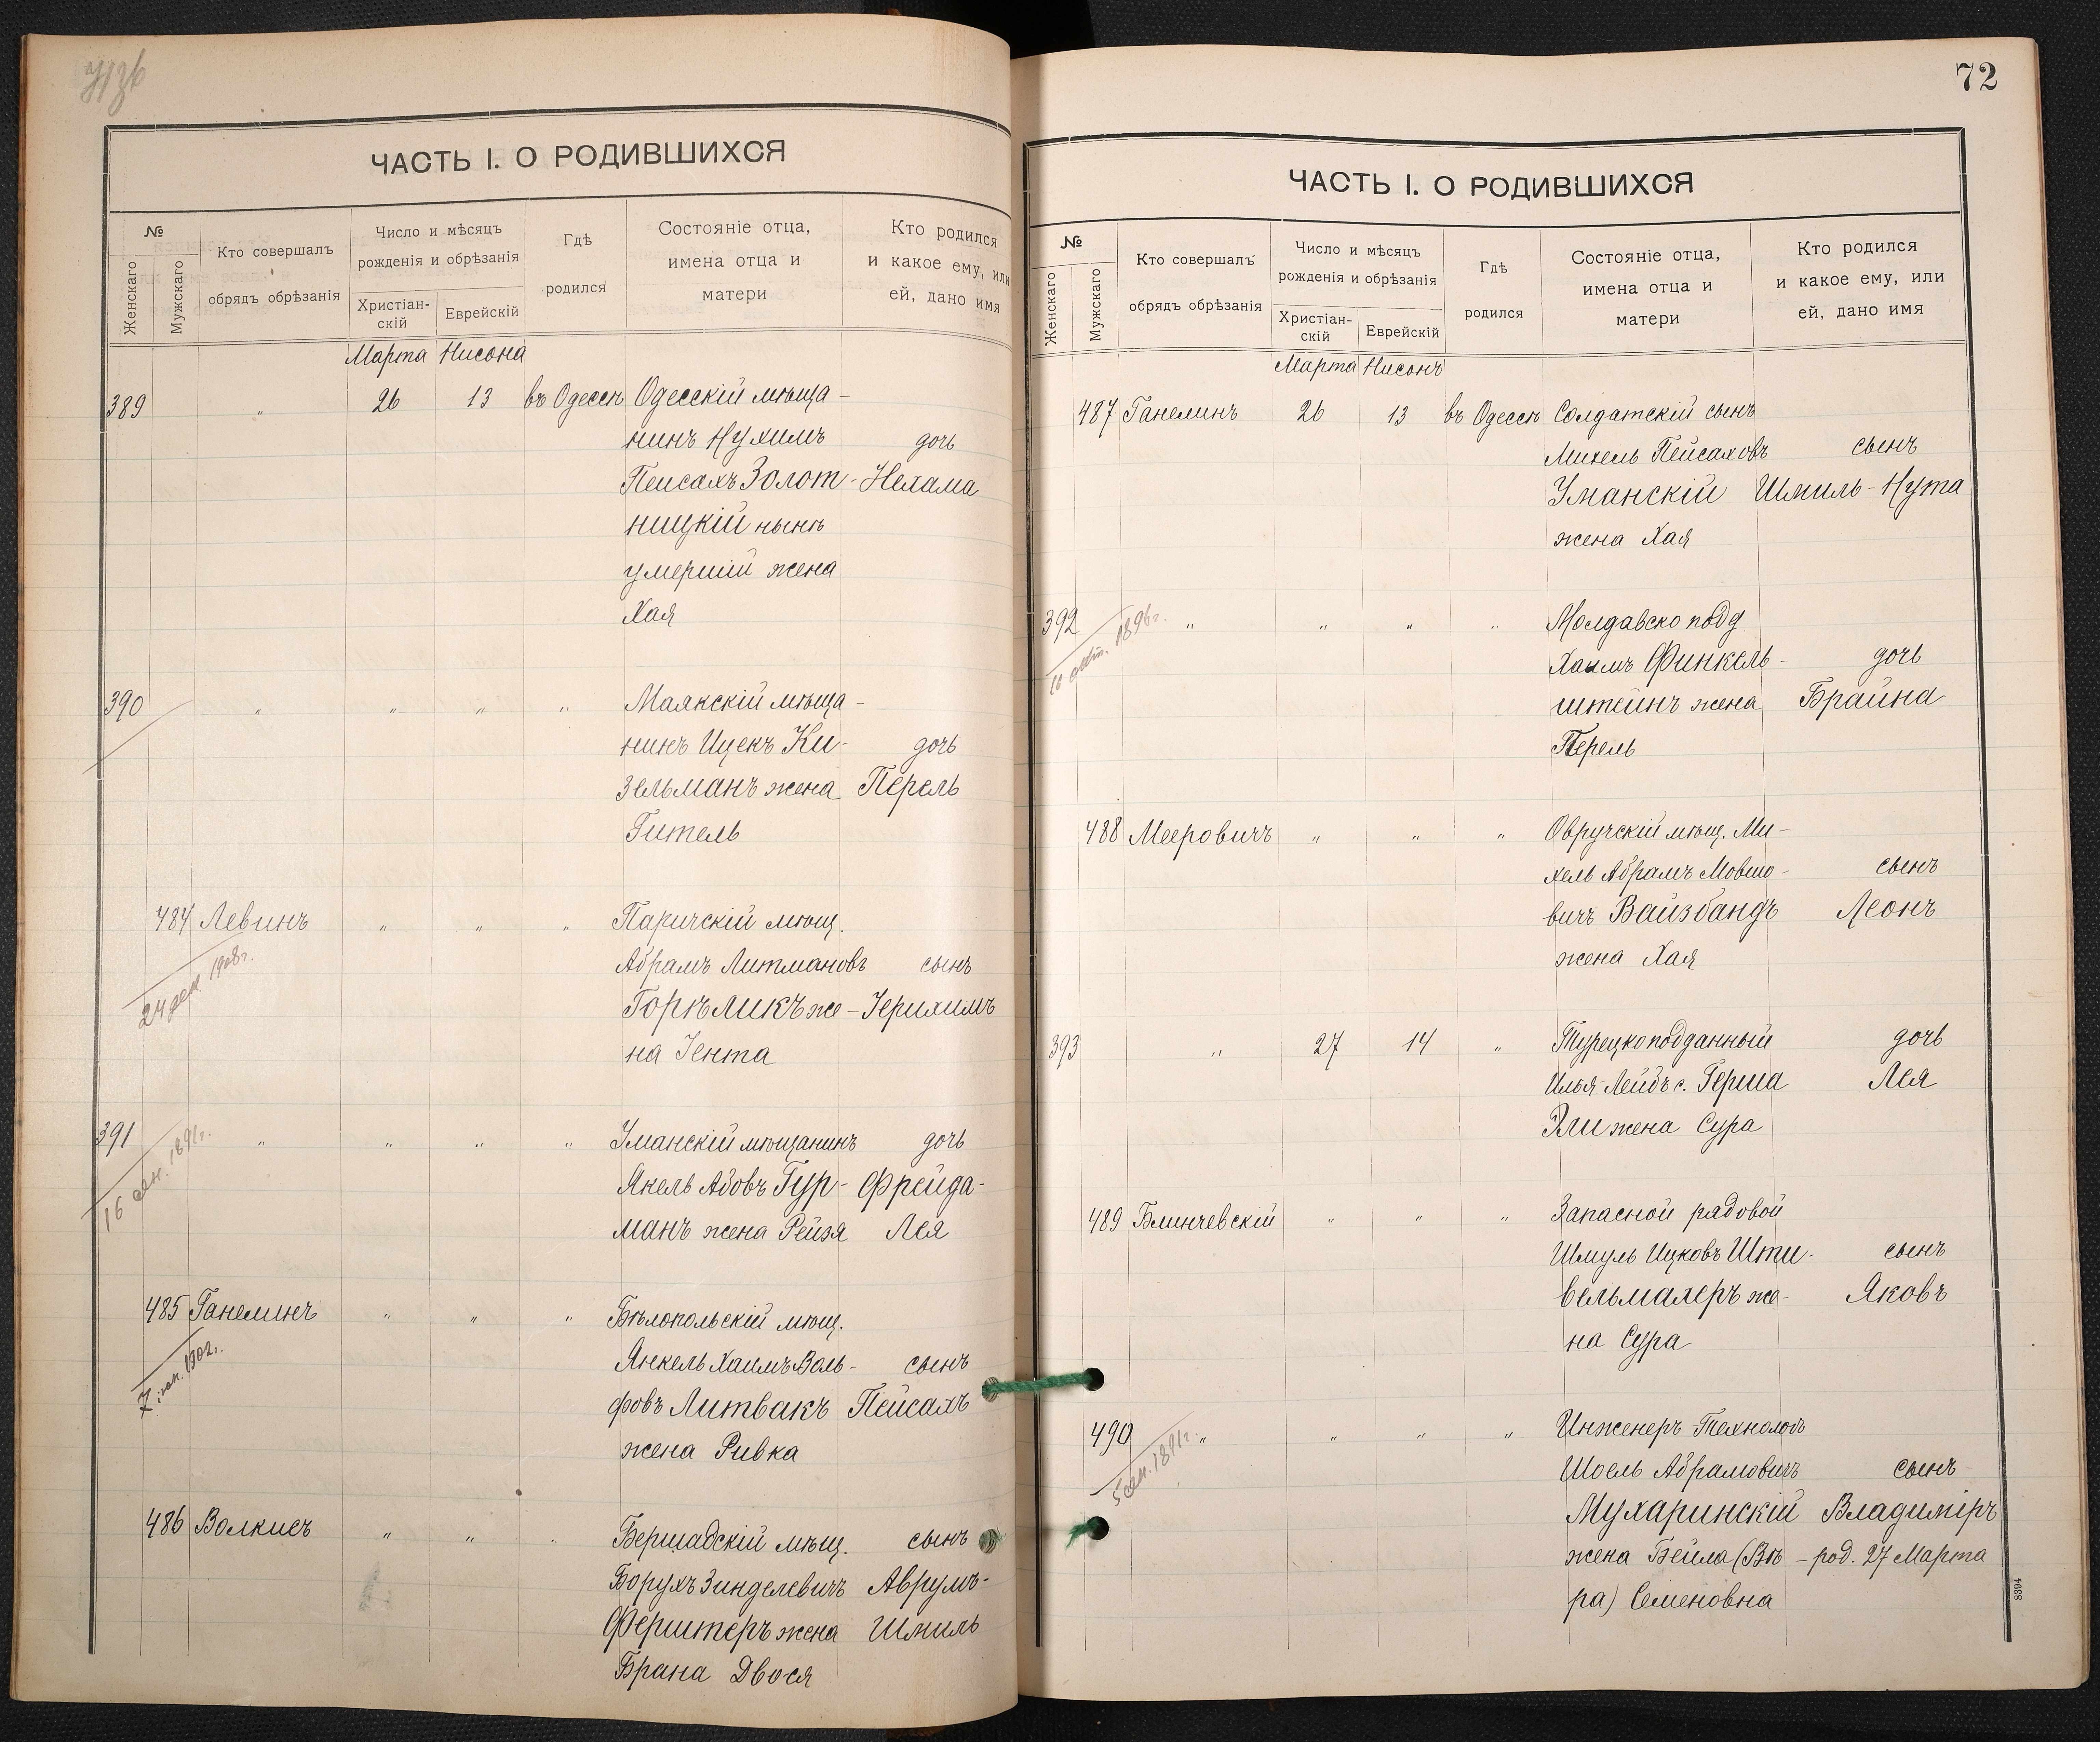 ЧАСТЬ I. О РОДИВШИХСЯ
№
Женскаго
Мужскаго
Кто совершалъ
обрядъ обрѣзанія
Число и мѣсяцъ
рожденія и обрѣзанія
Христіан-
скій
Еврейскій
Гдѣ
родился
Состояніе отца,
имена отца и
матери
Кто родился
и какое ему, или
ей, дано имя
Марта Нисона
389 " 26 13 въ Одессѣ Одесскій мѣща-
нинъ Нухимъ дочь
Пейсахъ Золот- Нехама
ницкій нынѣ
умершій жена
Хая
390 " " " " Маякскій мѣща-
нинъ Ицекъ Ки- дочь
зельманъ жена Перель
Гитель
484 Левинъ " " " Паричскій мѣщ.
24 дек. 1908г.
Абрамъ Литмановъ сынъ
Горѣликъ же- Іерихимъ
на Іента
391 " " " " Уманскій мѣщанинъ дочь
16 сен. 1891г.
Янкель Абовъ Гур- Фрейда-
манъ жена Рейзя Лея
485 Ганелинъ " " " Бѣлопольскій мѣщ.
1902г.
Янкель Хаимъ Воль- сынъ
фовъ Литвакъ Пейсахъ
жена Ривка
486 Волкисъ " " " Бершадскій мѣщ. сынъ
Борухъ Зинделевичъ Аврумъ-
Ферштеръ жена Шмиль
Брана Двося
72
ЧАСТЬ I. О РОДИВШИХСЯ
№
Женскаго
Мужскаго
Кто совершалъ
обрядъ обрѣзанія
Число и мѣсяцъ
рожденія и обрѣзанія
Христіан-
скій
Еврейскій
Гдѣ
родился
Состояніе отца,
имена отца и
матери
Кто родился
и какое ему, или
ей, дано имя
Марта Нисонъ
487 Ганелинъ 26 13 въ Одессѣ Солдатскій сынъ
Михель Пейсаховъ сынъ
Уманскій Шмиль-Нута
жена Хая
392 " " " " Молдавско подд
1896г.
Хаимъ Финкель- дочь
штейнъ жена Брайна
Перель
488 Мееровичъ " " " Овручскій мѣщ. Ми-
хель Абрамъ Мовшо- сынъ
вичъ Вайзбандъ Леонъ
жена Хая
393 " 27 14 " Турецкоподданный дочь
Илья Лейбъ с. Герша Лея
Эли жена Сура
489 Блинчевскій " " " Запасной рядовой
Шмуль Ицковъ Шти- сынъ
вельмахеръ же- Яковъ
на Сура
490 " " " " Инженеръ-Технологъ
5 сен. 1891г.
Шоель Абрамовичъ сынъ
Мухаринскій Владиміръ
жена Бейла (Вѣ- род. 27 Марта
ра) Семеновна
8394